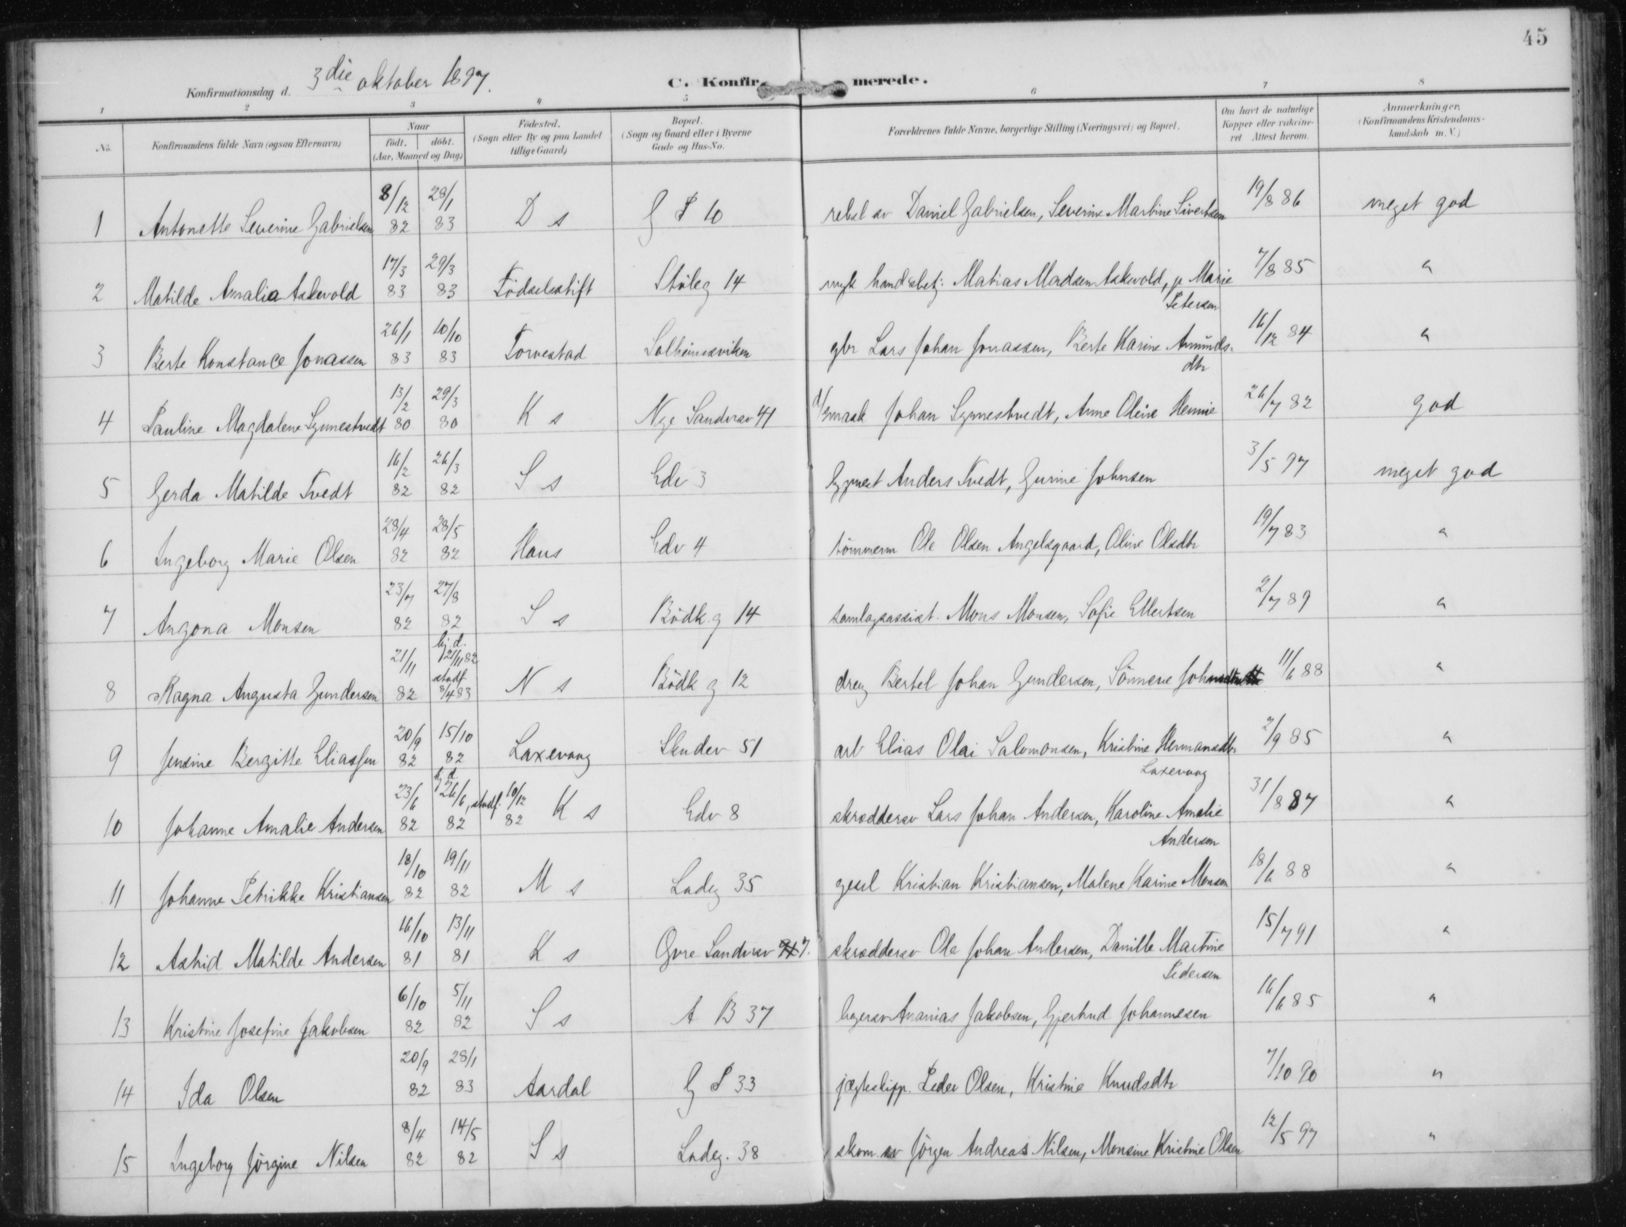 45
Konfirmationsdag d. 3die oktober 1897.
C. Konfirmerede.
1 2 3 4 5 6 7 8
No.
Konfirmandens fulde Navn (ogsaa Efternavn)
Naar
født. døbt.
(Aar, Maaned og Dag)
Fødested.
(Sogn eller By og paa Landet
tillige Gaard)
Bopæl.
(Sogn og Gaard eller i Byerne
Gade og Hus-No.
Forældrenes fulde Navne, borgerlige Stilling (Næringsvei) og Bopæl.
Om havt de naturlige
Kopper eller vakcine-
ret Attest herom.
Anmærkninger.
(Konfirmandens Kristendoms-
kundskab m. V.)
1 Antonette Severine Gabrielsen 8/12 82 28/1 83 D s G P 10 rebsl sv Daniel Gabrielsen, Severine Martine Sivertsen 19/8 86 meget god
2 Matilde Amalia Askevold 17/3 83 29/3 83 Födselsstift Støleg 14 Matias Madsen Askevold, g. Marie
Petersen 7/8 85 "
3 Berte Konstance Jonassen 26/1 83 10/10 83 Torvestad Solheimsviken gbr Lars Johan Jonassen, Berte Karine Amunds-
dtr 16/12 84 "
4 Pauline Magdalene Synnestvedt 13/2 80 29/3 80 K s Nye Sandvsv 41 Johan Synnestvedt, Anne Oline Hennie 26/7 82 god
5 Gerda Matilde Tvedt 16/2 82 26/3 82 S s Edv 3 Anders Tvedt, Gurine Johnsen 3/5 97 meget god
6 Ingeborg Marie Olsen 28/4 82 28/5 82 Haus Edv 4 tømmerm Ole Olsen Angelsgaard, Oline Olsdtr 19/7 83 "
7 Angona Monsen 23/7 82 27/8 82 S s Bödk. g 14 Mons Monsen, Sofie Ellertsen 2/7 89 "
8 Ragna Augusta Gundersen 21/11 82 hj. d. 21/11 82
stadf 8/4 83 N s Bödk g 12 dreng Bertel Johan Gundersen, 11/6 88 "
9 Jensine Bergitte Eliassen 20/9 82 15/10 82 Laxevaag Skudev 51 arb Elias Olai Salomonsen, Kristine Hermansdtr
Laxevaag 2/9 85 "
10 Johanne Amalie Andersen 23/6 82 hj. d. 26/6 82, stadf. 10/12 82 K s Edv 8 skræddersv Lars Johan Andersen, Karoline Amalie
Andersen 31/8 87 "
11 Johanne Petrikke Kristiansen 18/10 82 19/11 82 M s Ladeg 35 gesel Kristian Kristiansen, Malene Karine Monsen 18/6 88 "
12 Astrid Matilde Andersen 16/10 81 13/11 81 K s Øvre Sandvsv 7. skræddersv Ole Johan Andersen, Danille Martine
Pedersen 15/7 91 "
13 Kristine Josefine Jakobsen 6/10 82 5/11 82 S s A B 37 bagersv Ananias Jakobsen, Gjertrud Johannesen 16/6 85 "
14 Ida Olsen 20/9 82 28/1 83 Aardal G P 33 jægteskipp. Peder Olsen, Kristine Knudsdtr 7/10 90 "
15 Ingeborg Jörgine Nilsen 8/4 82 14/5 82 S s Ladeg. 38 skom. sv Jörgen Andreas Nilsen, Monsine Kristine Olsen 12/5 97 "